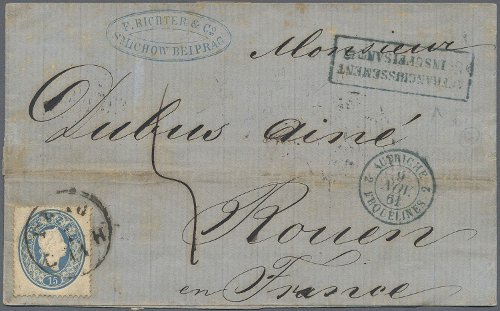 F. RICHTER & Co
SMICHOW BEI PRAG
Monsieur
AFFRANCHISSEMENT
INSUFFISANT
Dubus ainé
AUTRICHE
2 9 2
NOV.
61
ERQUELINES
Rouen
en France
15